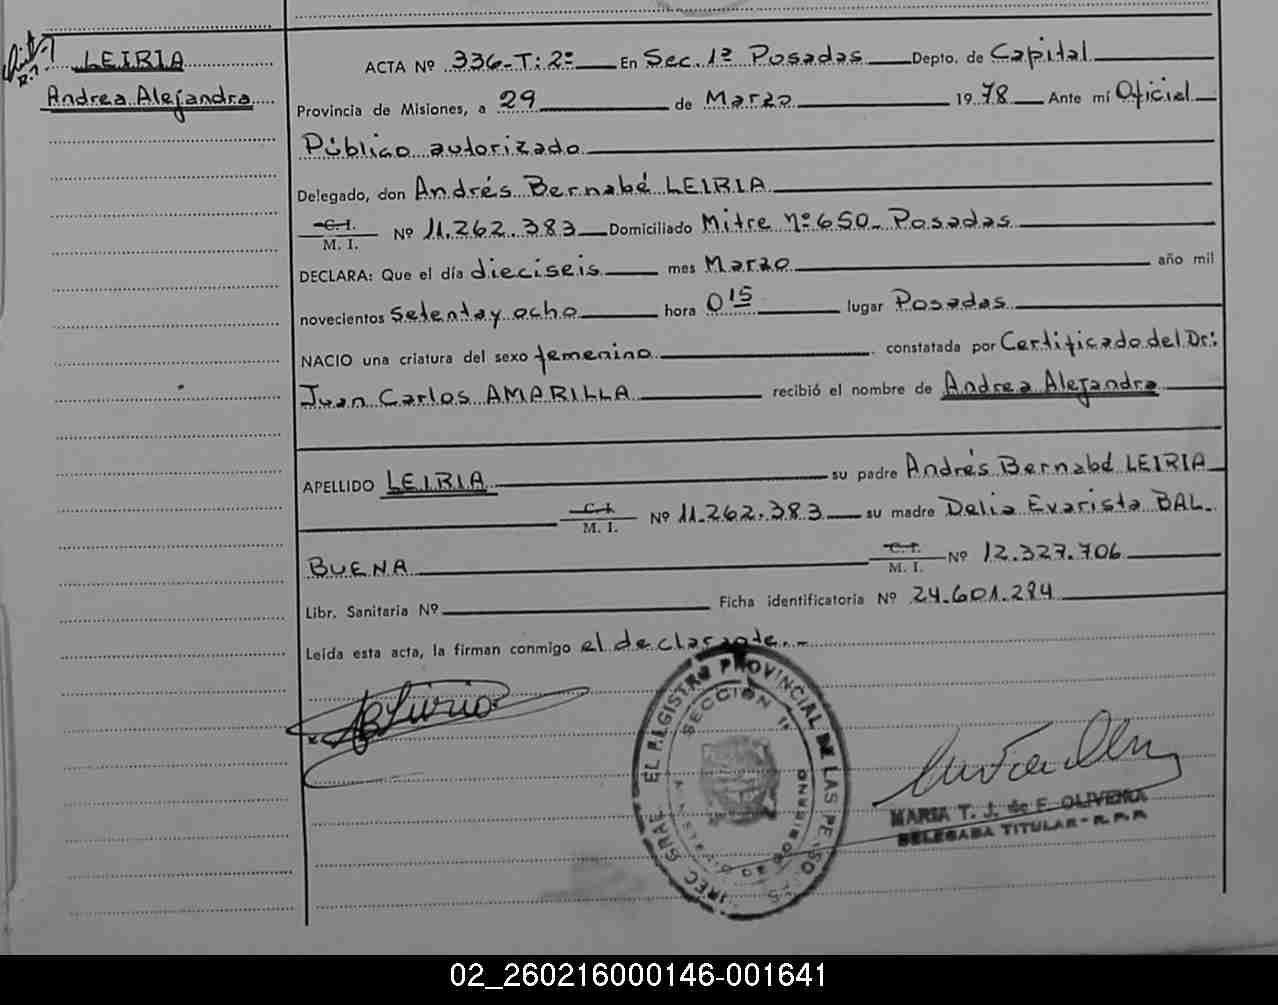 LEIRIA
Andrea Alejandra
ACTA Nº 336-T:2º En Sec. 1ª Posadas Depto. de Capital
Provincia de Misiones, a 29 de Marzo 1978 Ante mí Oficial
Público autorizado
Delegado, don Andrés Bernabé LEIRIA
C. I.
M. I. Nº 11.262.383 Domiciliado Mitre Nº 650- Posadas
DECLARA: Que el día dieciseis mes Marzo año mil
novecientos setenta y ocho hora 0 15 lugar Posadas
NACIO una criatura del sexo femenino constatada por Certificado del Dr:
Juan Carlos AMARILLA recibió el nombre de Andrea Alejandra
APELLIDO LEIRIA su padre Andrés Bernabé LEIRIA
C. I.
M. I. Nº 11.262.383 su madre Delia Evarista BAL-
BUENA C. I.
M. I. Nº 12.327.706
Libr. Sanitaria Nº Ficha identificatoria Nº 24.601.284
Leída esta acta, la firman conmigo el declarante.-
EL REGISTRO PROVINCIAL DE LAS
SECCION 1ª
MARIA T. J. de F. OLIVEIRA
DELEGADA TITULAR - R.P.P
02_260216000146-001641